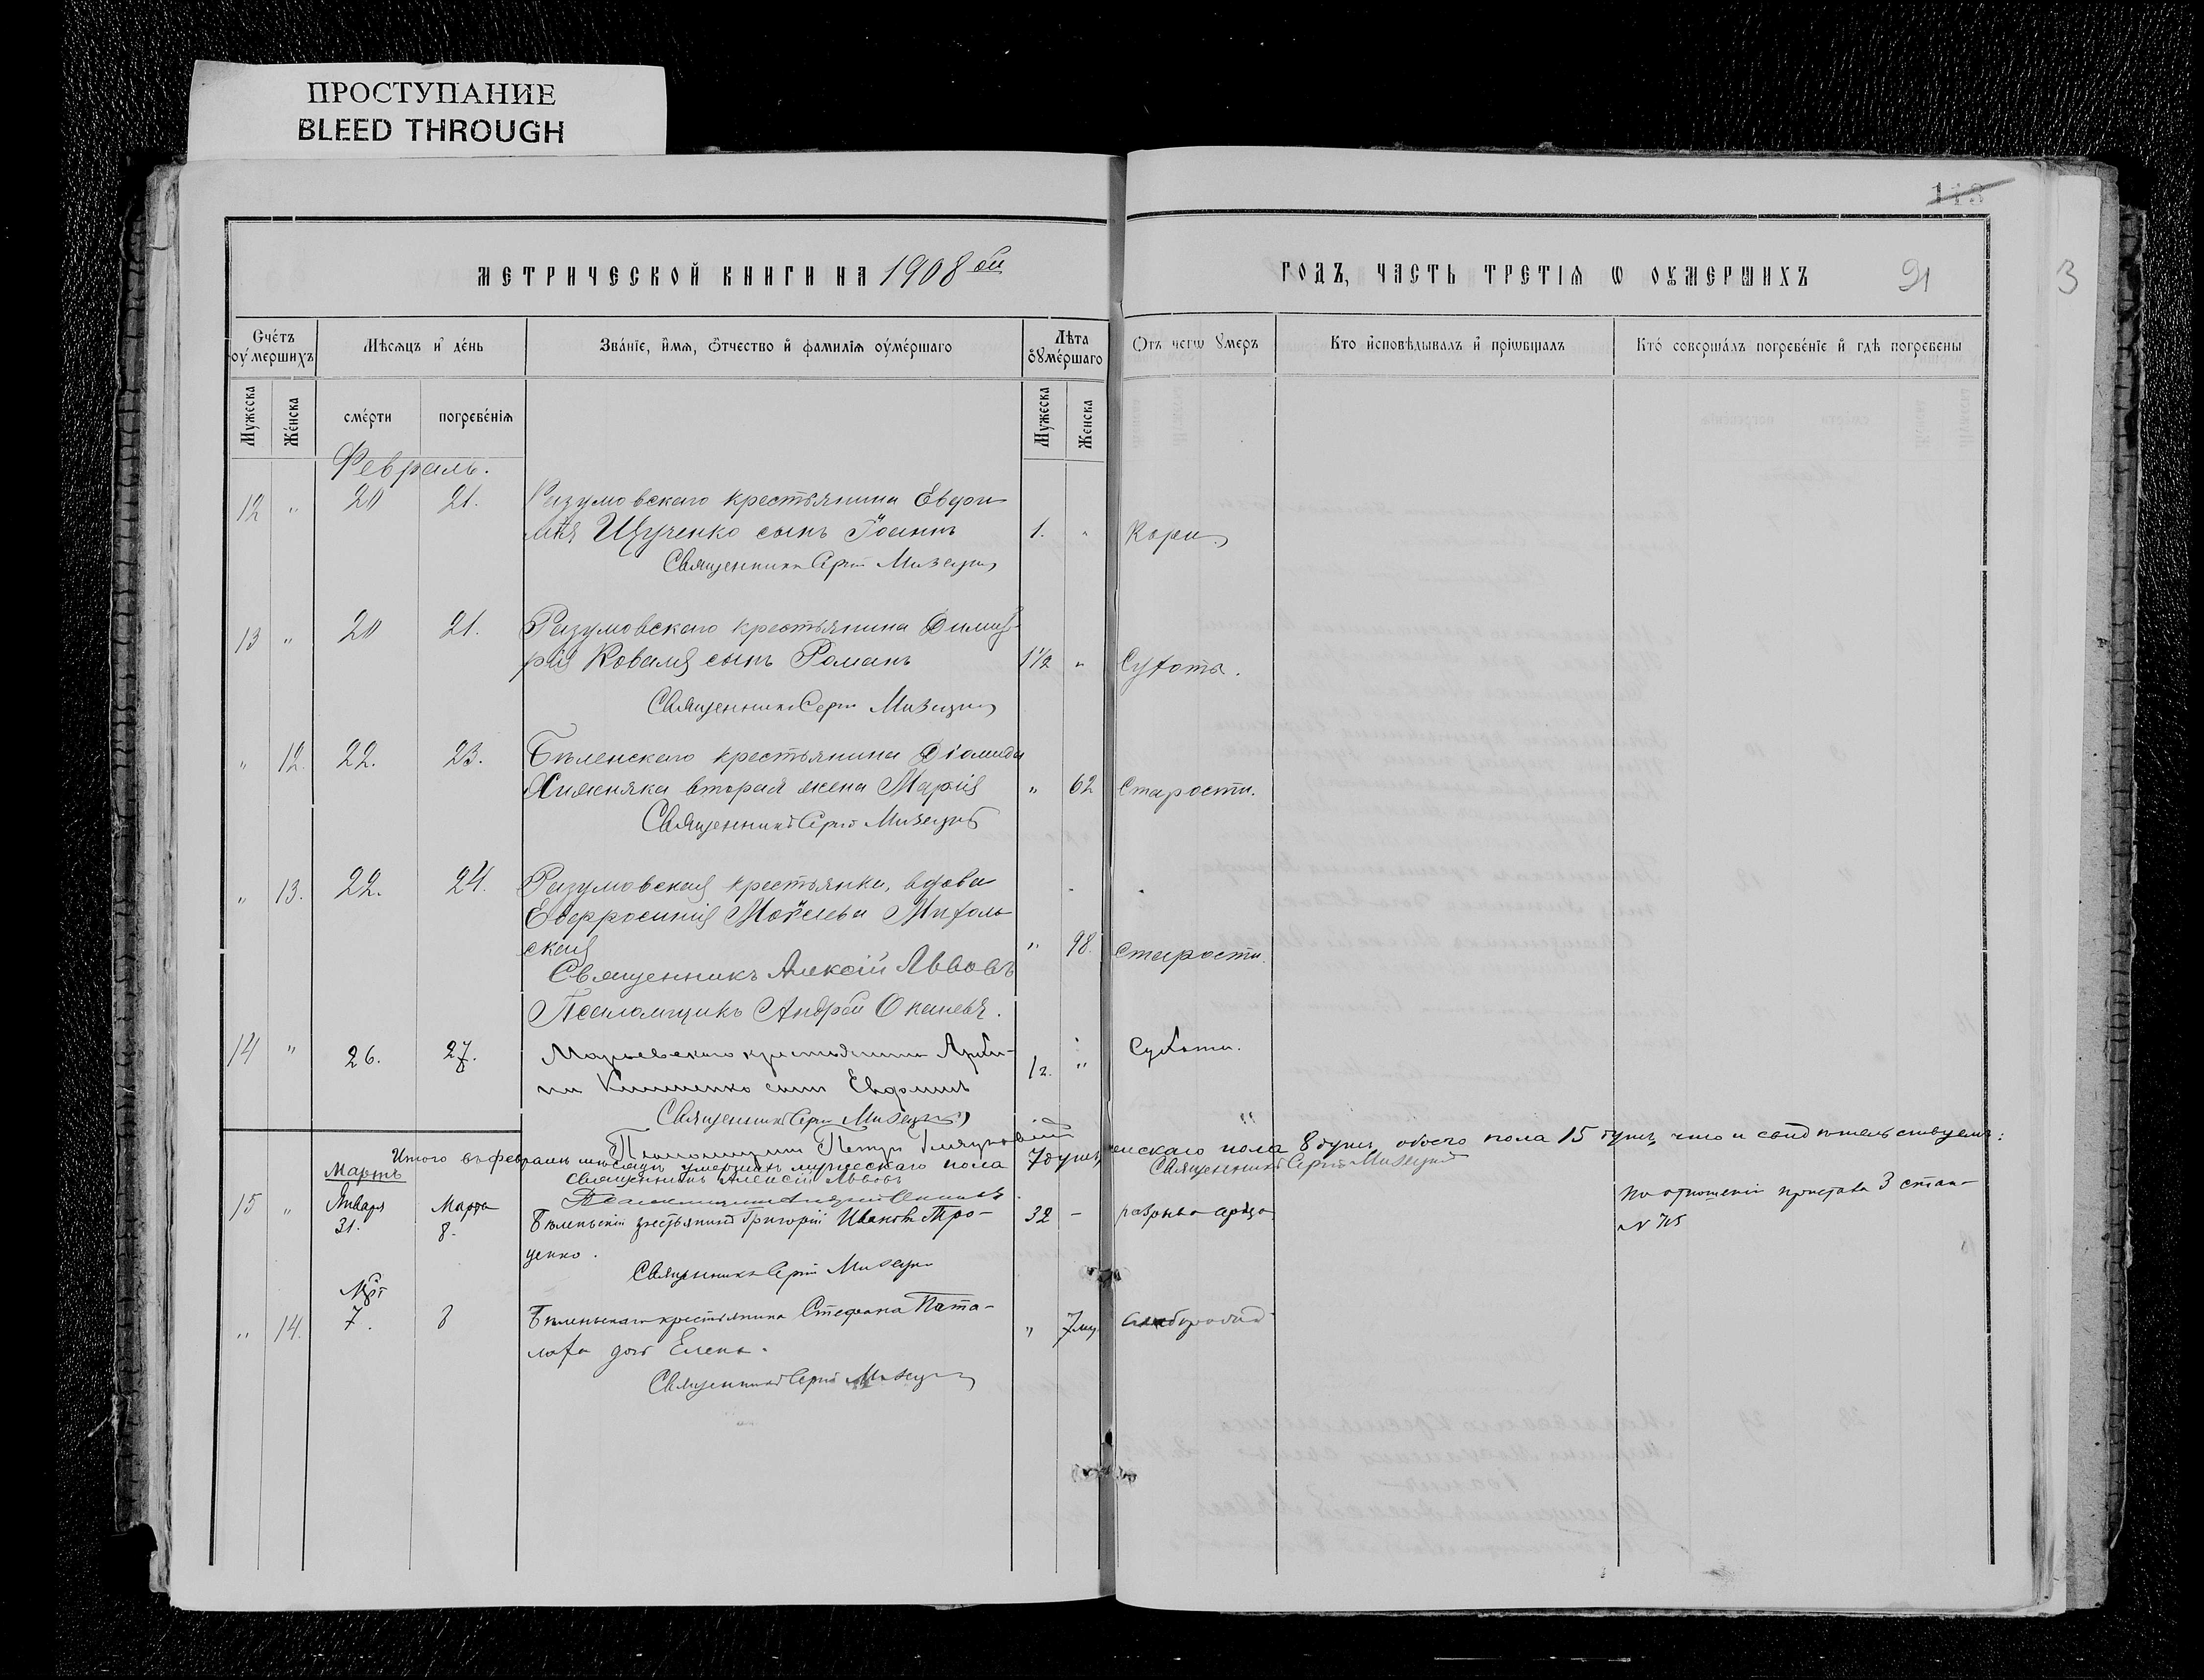 ПРОСТУПАНИЕ
BLEED THROUGH
118
МЕТРИЧЕСКОЙ КНИГИ НА 1908 ой
ГОДЪ, ЧАСТЬ ТРЕТІѦ Ѡ ОУМЕРШИХЪ
91
3
Счетъ оумершихъ
Мѣсѧцъ и день
Званіе, имѧ, отчество и фамиліѧ оумершаго
Лѣта оумершаго
Отъ чегѡ умеръ
Кто исповѣдывалъ и пріѡбщалъ
Кто совершалъ погребеніе и гдѣ погребены
Мужеска
Женска
смерти
погребеніѧ
Мужеска
Женска
Февраль.
12 " 20 21. Разумовскаго крестьянина Евфи-
мія Щученко сынъ Іоаннъ 1. " Кори
Священникъ Сергій Мизецкій
13 " 20 21. Разумовскаго крестьянина Димит-
рія Коваля сынъ Романъ 1½ " Сухоты.
Священникъ Сергій Мизецкій
" 12. 22. 23. Бѣленскаго крестьянина Діомида
Хижняка вторая жена Марія " 62 Старости.
Священникъ Сергій Мизецкій
" 13. 22. 24. Разумовская крестьянка, вдова
Евфросинія Моисеева Михаль-
ская " 98. Старости.
Священникъ Алексій Львовъ
Псаломщикъ Андрей
14 " 26. 27. Марьевскаго крестьянина
сынъ 1 г. " Сухоты.
Священникъ Сергій Мизецкій
Псаломщикъ Петръ
Итого въ февралѣ мѣсяцѣ умершихъ мужескаго пола 7 душъ, женскаго пола 8 душъ, обоего пола 15 душъ, что и свидѣтельствуемъ:
Священникъ Сергій Мизецкій
Мартъ
Священникъ Алексій Львовъ
Псаломщикъ Андрей
15 " Января 31. Марта 8. Бѣленскій крестьянинъ Григорій Ивановъ Про-
ценко. 32 - разрыва сердца
По отношенію пристава 3 стана
№ 715
Священникъ Сергій Мизецкій
Март
" 14. 7. 8 Бѣленскаго крестьянина Стефана Пата-
лаха дочь Елена. " 7 мц.
Священникъ Сергій Мизецкій